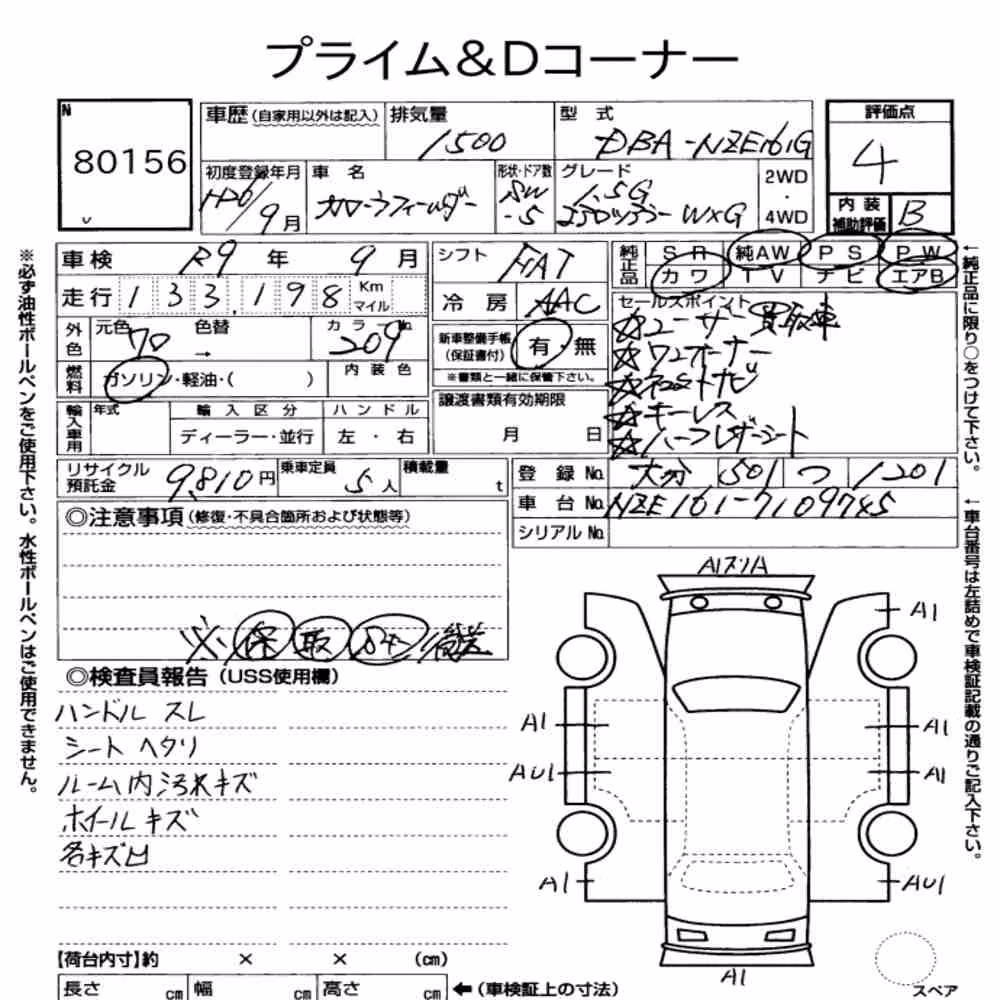 プライム&Dコーナー
N
80156
車歴(自家用以外は記入)
排気量
1500
型 式
DBA-NZE161G
評価点
4
初度登録年月
H26/9月
車 名
カローラフィールダー
形状・ドア数
SW
-5
グレード
1.5G
エアロツアラーWXG
2WD
・
4WD
内装
補助評価
B
車検 R9 年 9 月
シフト FAT
純正品
SR 純AW PS PW
カワ TV ナビ エアB
走行 133,198 Km
マイル
冷房 AAC
セールスポイント
☆ユーザー買取車
☆ワンオーナー
☆ナビ
☆キーレス
☆ハーフレザーシート
外色
元色 70 色替 →
カラーNo. 209
新車整備手帳
(保証書付)
有 無
※書類と一緒に保管下さい。
燃料
ガソリン・軽油・( )
内装色
譲渡書類有効期限
月 日
輸入車用
年式
輸入区分
ハンドル
ディーラー・並行
左・右
リサイクル
預託金
9,810円
乗車定員
5人
積載量
t
登録No. 大分 501 つ 1201
車台No. NZE161-7109745
シリアルNo.
◎注意事項(修復・不具合箇所および状態等)
※ 保 取
◎検査員報告(USS使用欄)
ハンドル スレ
シート ヘタリ
ルーム内汚れキズ
ホイールキズ
各キズ凹
A1
A1
A1
AU1
A1
A1
A1
AU1
A1
スペア
【荷台内寸】約 × × (cm)
長さ cm 幅 cm 高さ cm
←(車検証上の寸法)
※必ず油性ボールペンをご使用下さい。水性ボールペンはご使用できません。
←純正品に限り○をつけて下さい。
←車台番号は左詰めで車検証記載の通りご記入下さい。